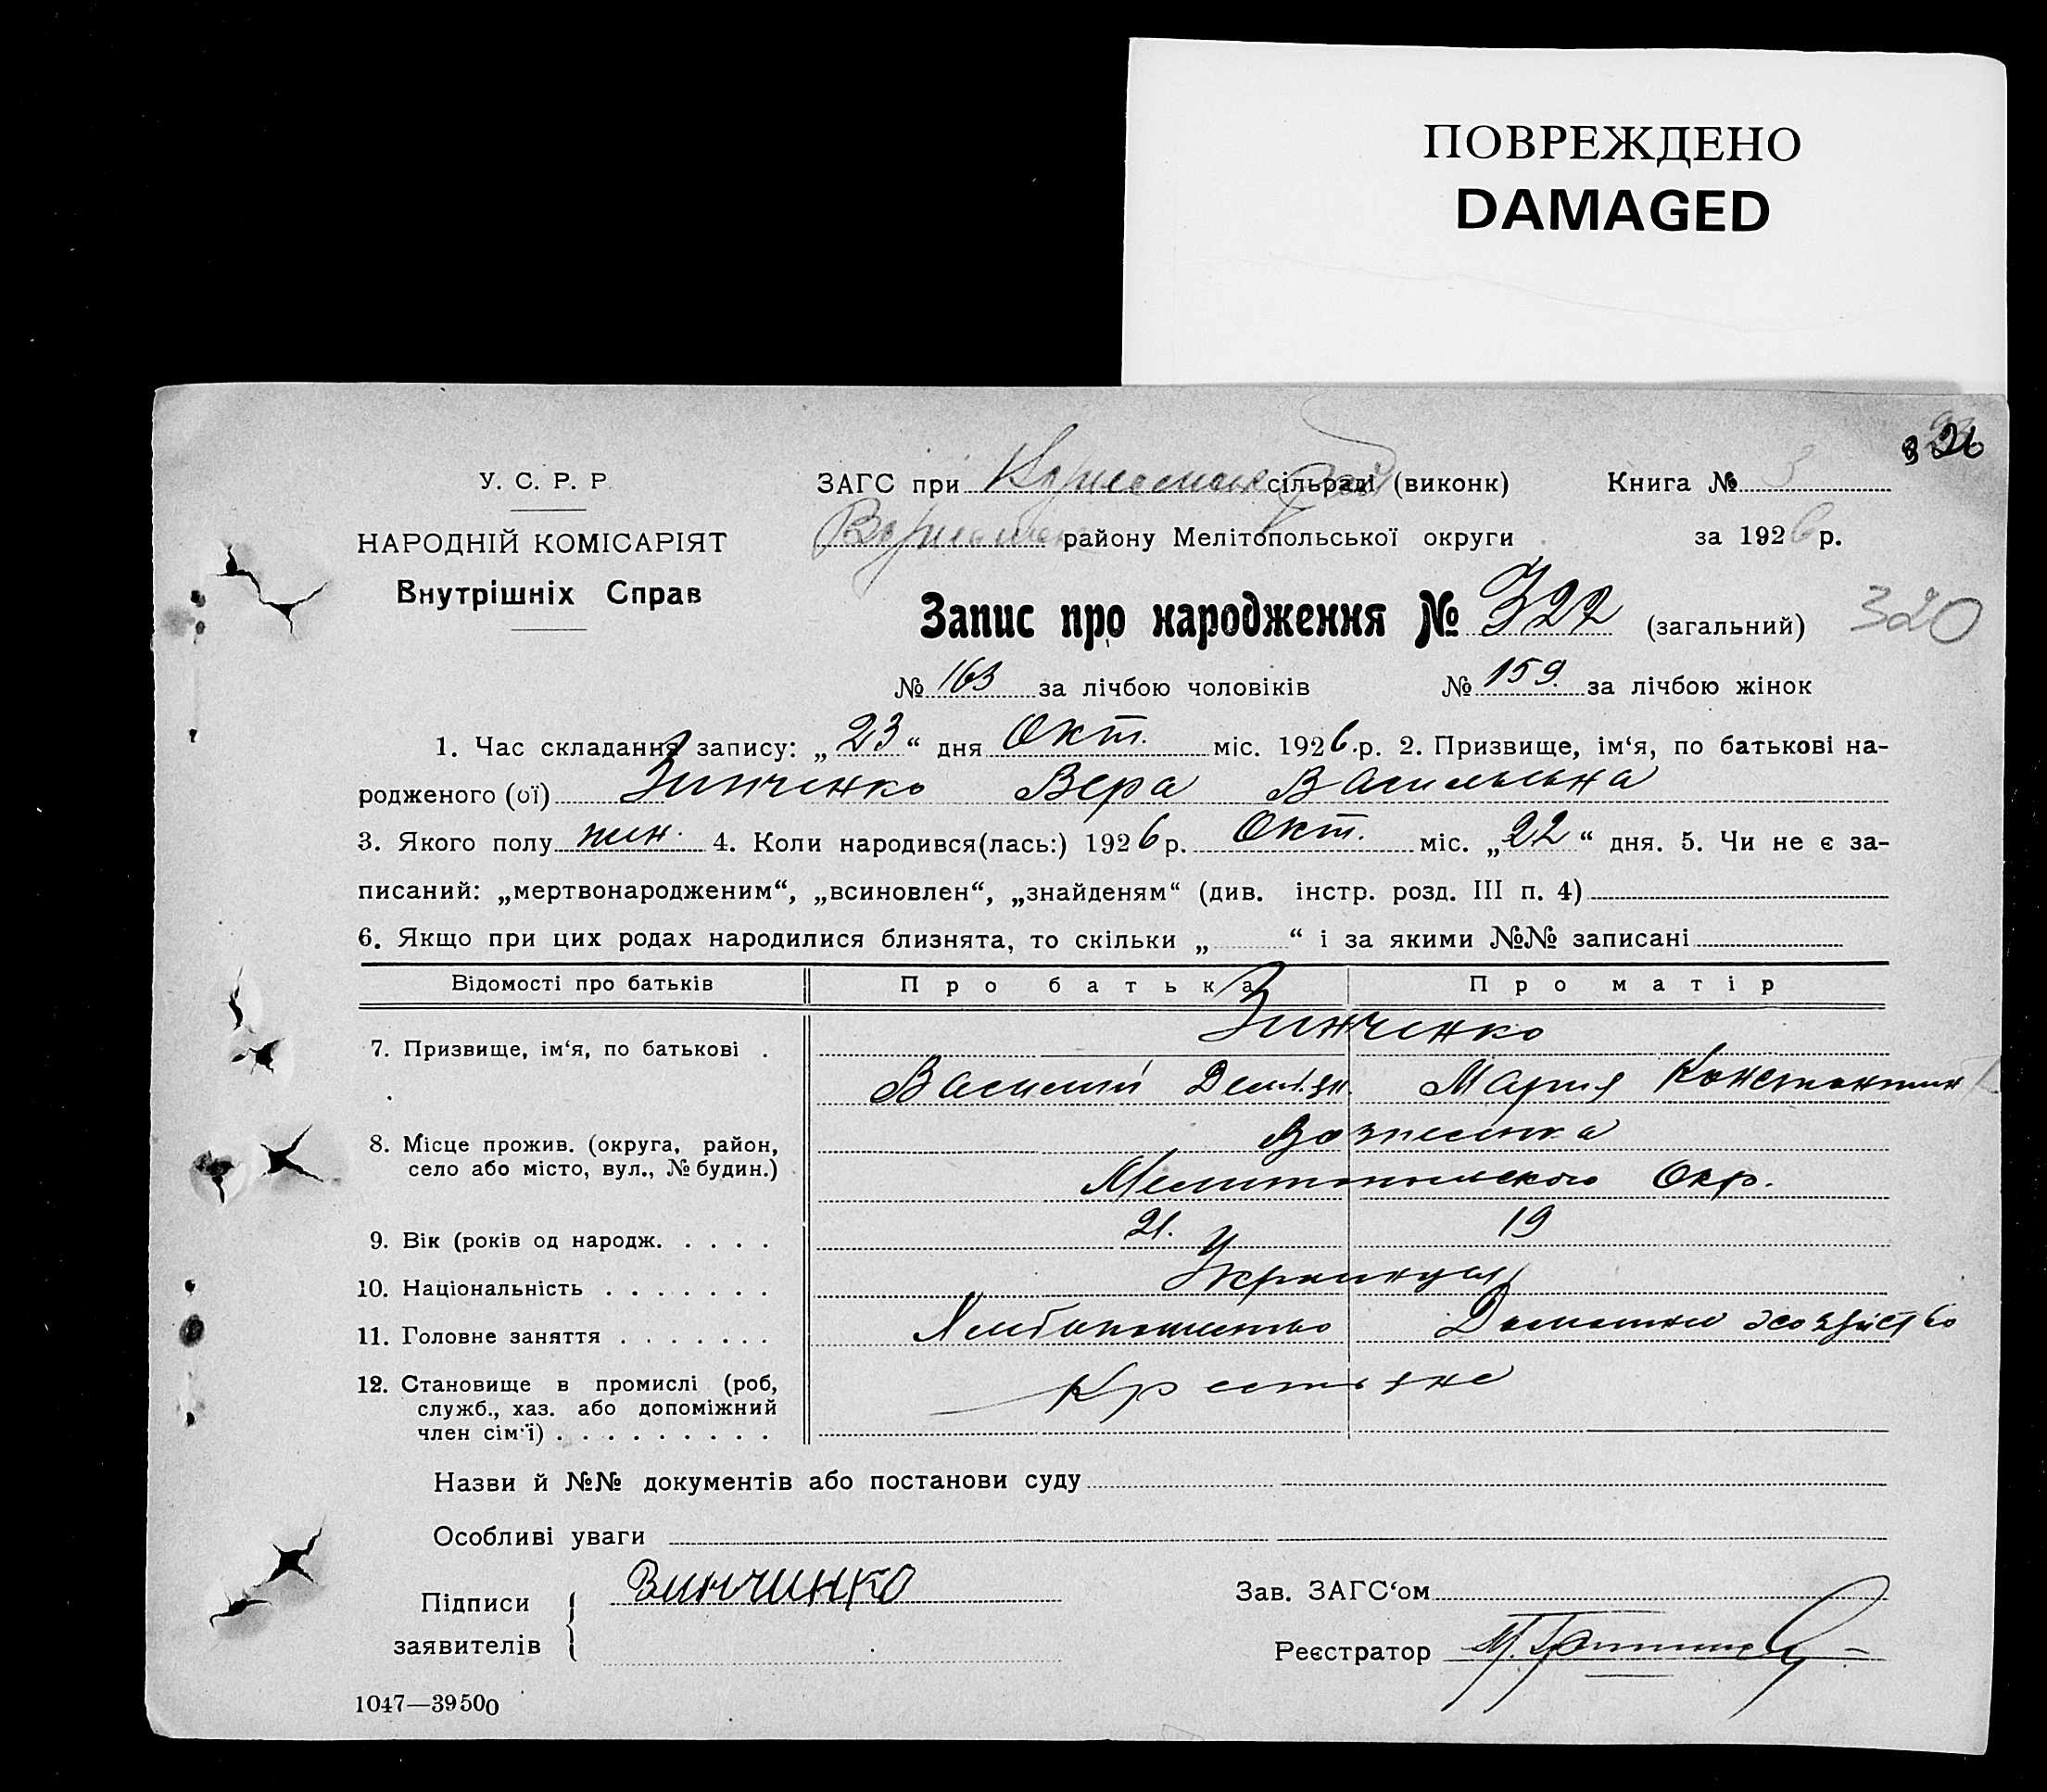 ПОВРЕЖДЕНО
DAMAGED
326
У. С. Р. Р
ЗАГС при сільраді (виконк) Книга № 3
НАРОДНІЙ КОМІСАРІЯТ
району Мелітопольської округи за 1926 р.
Внутрішніх Справ
Запис про народження № 322 (загальний) 320
№ 163 за лічбою чоловіків № 159. за лічбою жінок
1. Час складання запису: „23“ дня Окт. міс. 1926 р. 2. Призвище, ім‘я, по батькові на-
родженого (ої) Зинченко Вера Васильевна
3. Якого полу жен. 4. Коли народився(лась:) 1926 р. Окт. міс. „22“ дня. 5. Чи не є за-
писаний: „мертвонародженим“, „всиновлен“, „знайденям“ (див. інстр. розд. III п. 4)
6. Якщо при цих родах народилися близнята, то скільки „ “ і за якими №№ записані
Відомості про батьків Про батька Про матір
7. Призвище, ім‘я, по батькові . Зинченко
Василий Демьян. Мария Константин
8. Місце прожив. (округа, район, Вознесенка
село або місто, вул., № будин.) Мелитопольского Окр.
9. Вік (років од народж. . . . . 21. 19
10. Національність . . . . . . . Украинцы
11. Головне заняття . . . . . . . Хлебопашество Домашнее хозяйство
12. Становище в промислі (роб, Крестьяне
служб., хаз. або допоміжний
член сім‘ї) . . . . . . . . .
Назви й №№ документів або постанови суду
Особливі уваги
Підписи Зинчинко Зав. ЗАГС‘ом
заявителів Реєстратор
1047—39500